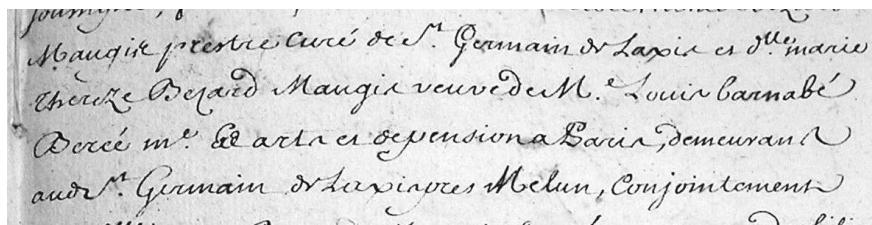 Maugis prestre Curé de St Germain de Laxis et dlle marie
thereze Bezard Maugis veuve de Me Louis barnabé
Bercé me Es arts et de pension a Paris, demeurans
aud St Germain de Laxis pres Melun, Conjointement